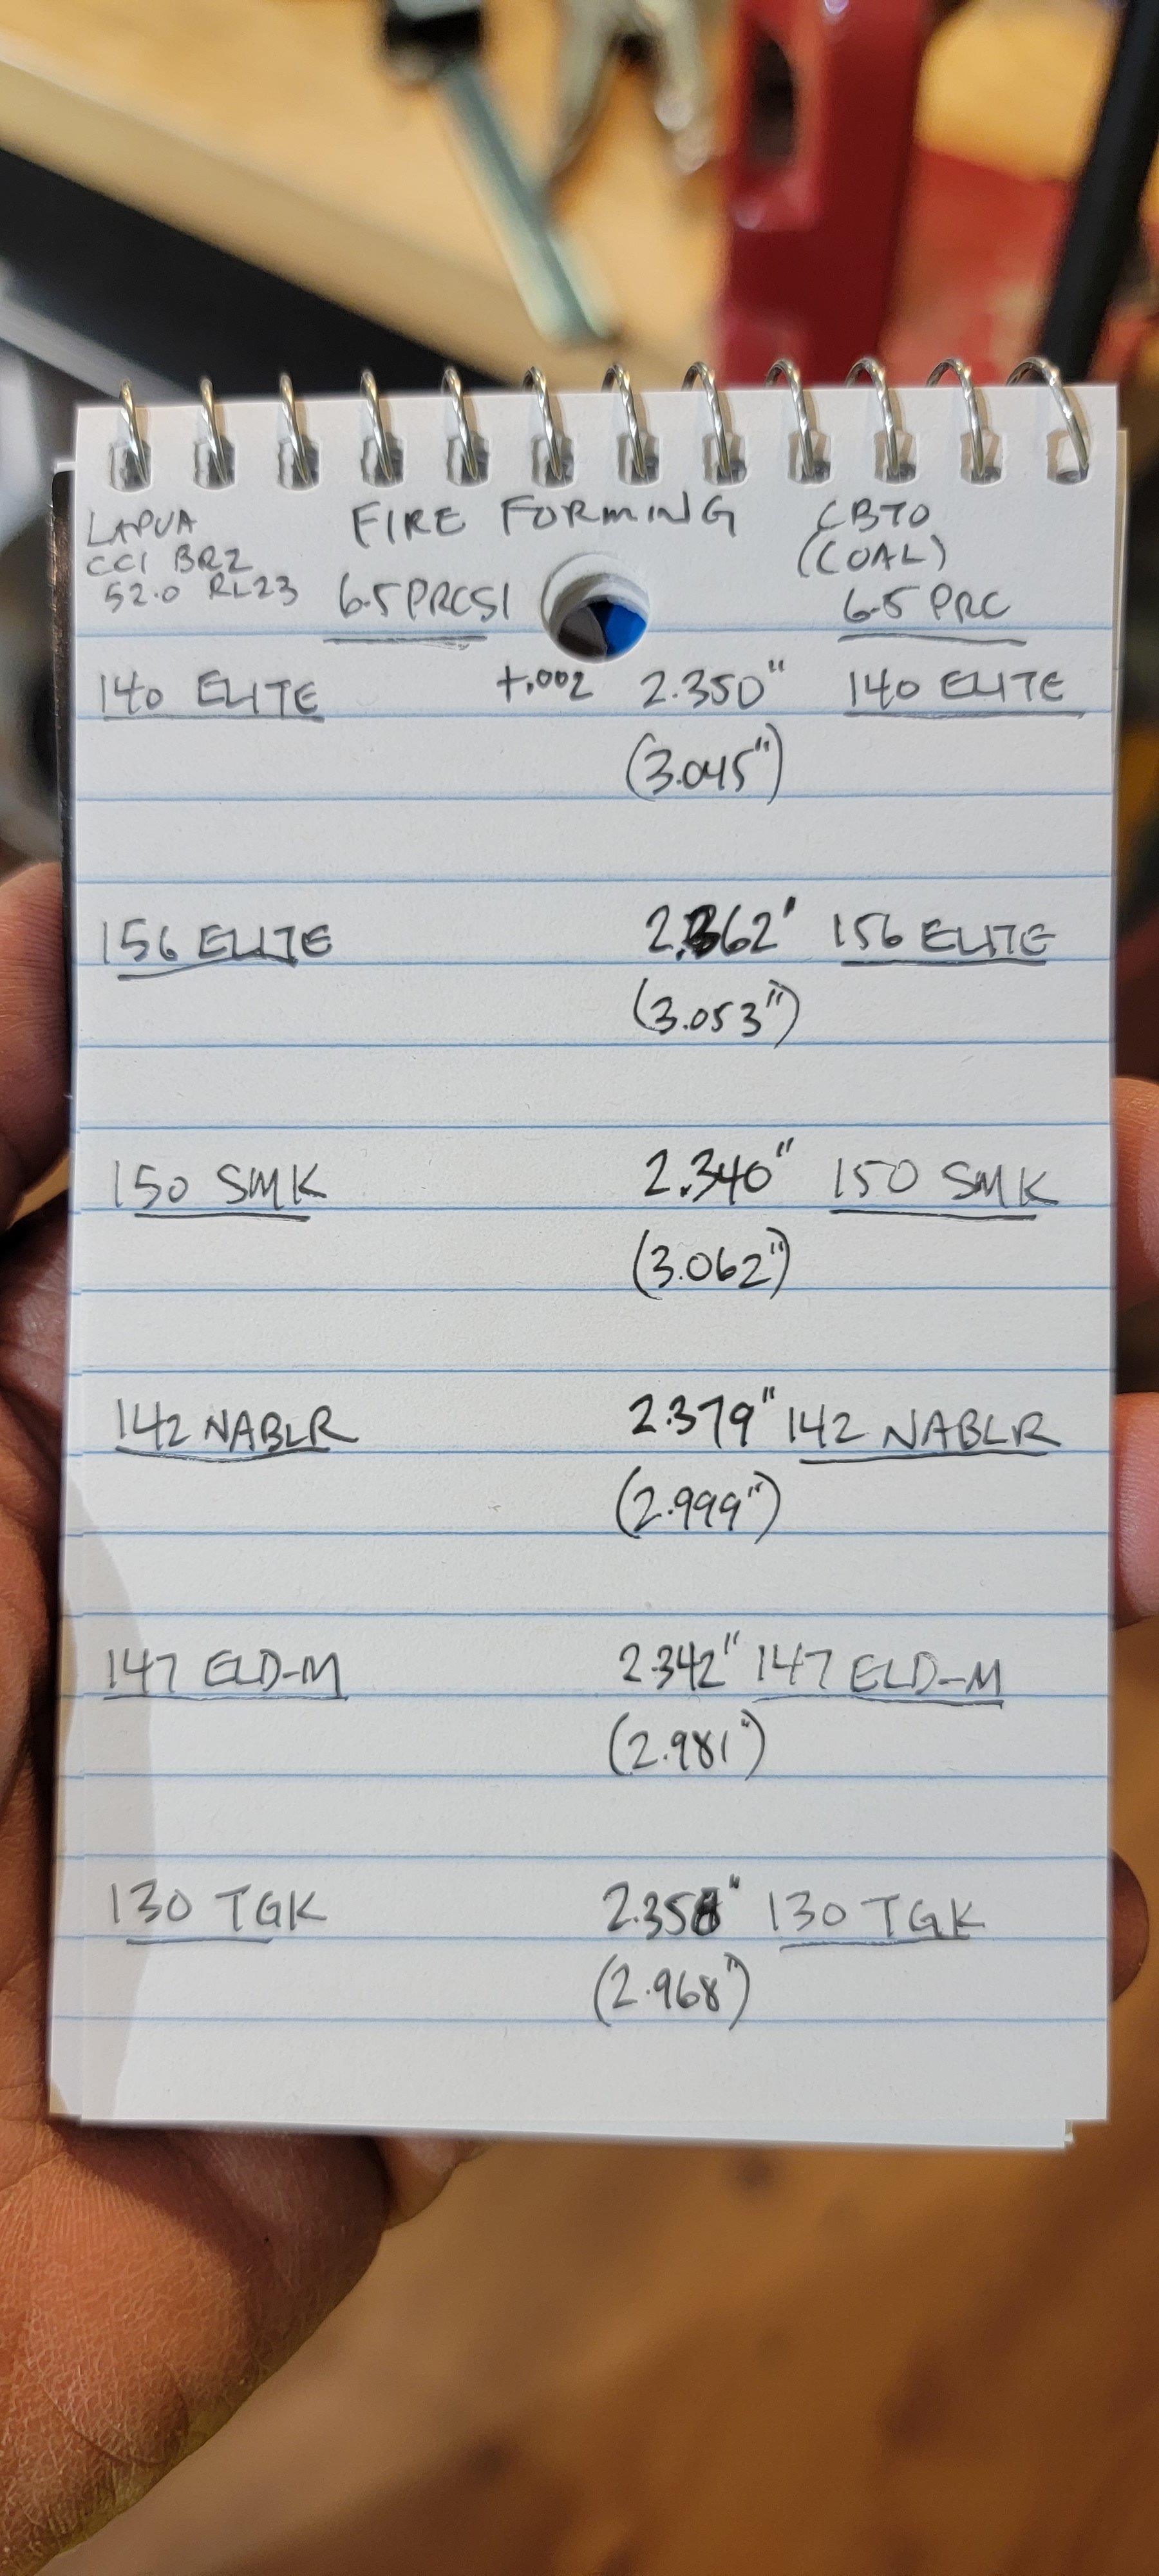 FIRE FORMING
LAPUA
CCI BR2
52.0 RL23
6.5 PRCSI
CBTO
(COAL)
6.5 PRC
140 ELITE +.002 2.350" 140 ELITE
(3.045")
156 ELITE 2.362" 156 ELITE
(3.053")
150 SMK 2.340" 150 SMK
(3.062")
142 NABLR 2.379" 142 NABLR
(2.999")
147 ELD-M 2.342" 147 ELD-M
(2.981")
130 TGK 2.358" 130 TGK
(2.968")